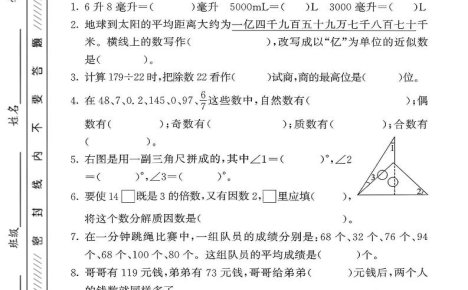 1. 6升8毫升=(　　)毫升　5000mL=(　　)L　3000毫升=(　　)L
2. 地球到太阳的平均距离大约为一亿四千九百五十九万七千八百七十千
米。横线上的数写作(　　),改写成以“亿”为单位的近似数
是(　　)。
3. 计算179÷22时,把除数22看作(　　)试商,商的最高位是(　　)位。
4. 在48、7、0.2、145、0、97、6/7这些数中,自然数有(　　);偶
数有(　　);奇数有(　　);质数有(　　);合数有
(　　)。
5. 右图是用一副三角尺拼成的,其中∠1=(　　)°,∠2
=(　　)°,∠3=(　　)°。
1
3
2
6. 要使14□既是3的倍数,又有因数2,□里应填(　　),
将这个数分解质因数是(　　)。
7. 在一分钟跳绳比赛中,一组队员的成绩分别是:68个、32个、76个、94
个、68个、100个、80个。这组队员的平均成绩是(　　)个。
8. 哥哥有119元钱,弟弟有73元钱,哥哥给弟弟(　　)元钱后,两个人
的钱数就同样多了
姓名
班级
密封线内不要答题